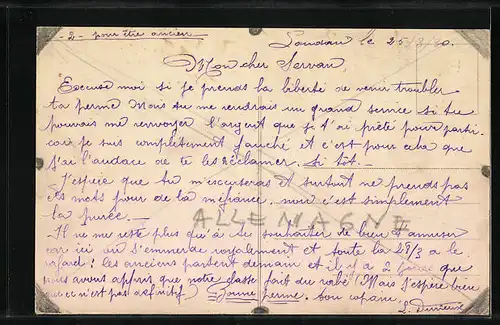 -2- pour être ancien
Landau le 25/3/30.
Mon cher Servan,
Excuse moi si je prends la liberté de venir troubler
ta perme mais tu me rendrais un grand service si tu
pouvais me renvoyer l'argent que je t'ai prêté pour parti.
car je suis complètement fauché et c'est pour cela que
j'ai l'audace de te les réclamer. si tôt.
J'espère que tu m'excuseras et surtout ne prends pas
ces mots pour de la méfiance. non c'est simplement
la purée.
ALLEMAGNE
Il ne me reste plus qu'à te souhaiter de bien t'amuser
car ici on s'emmerde royalement et toute la 28/3 a le
cafard: les anciens partent demain et il y a 2 jours que
nous avons appris que notre classe fait du rabe (Mais j'espère bien
que ce n'est pas définitif.) Bonne perme. ton copain.